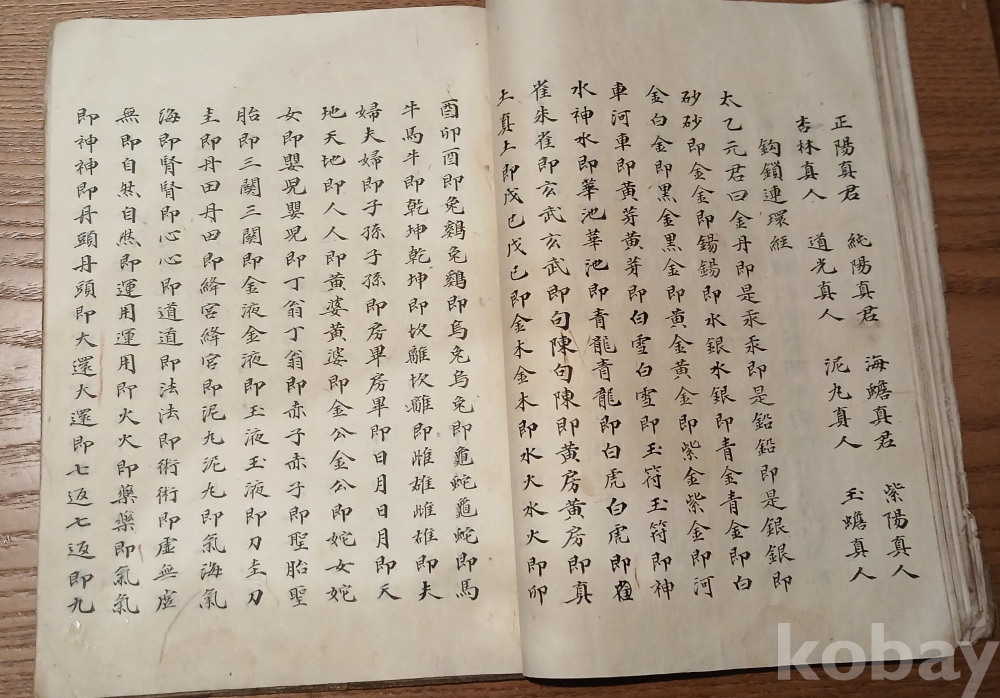 正陽真君 純陽真君 海蟾真君 紫陽真人
杏林真人 道光真人 泥丸真人 玉蟾真人
鈎鎖連環經
太乙元君曰金丹即是汞汞即是鉛鉛即是銀銀即
砂砂即金金即錫錫即水銀水銀即青金青金即白
金白金即黑金黑金即黄金黄金即紫金紫金即河
車河車即黄芽黄芽即白雪白雪即玉符玉符即神
水神水即華池華池即青龍青龍即白虎白虎即雀
雀朱雀即玄武玄武即句陳句陳即黄房黄房即真
土真土即戊己戊己即金木金木即水火水火即卯
酉卯酉即兔鷄兔鷄即烏兔烏兔即龜蛇龜蛇即馬
牛馬牛即乾坤乾坤即坎離坎離即雌雄雌雄即夫
婦夫婦即子孫子孫即房畢房畢即日月日月即天
地天地即人人即黄婆黄婆即金公金公即姹女姹
女即嬰兒嬰兒即丁翁丁翁即赤子赤子即聖胎聖
胎即三關三關即金液金液即玉液玉液即刀圭刀
圭即丹田丹田即絳宮絳宮即泥丸泥丸即氣海氣
海即腎腎即心心即道道即法法即術術即虛無虛
無即自然自然即運用運用即火火即藥藥即氣氣
即神神即丹頭丹頭即大還大還即七返七返即九
kobay